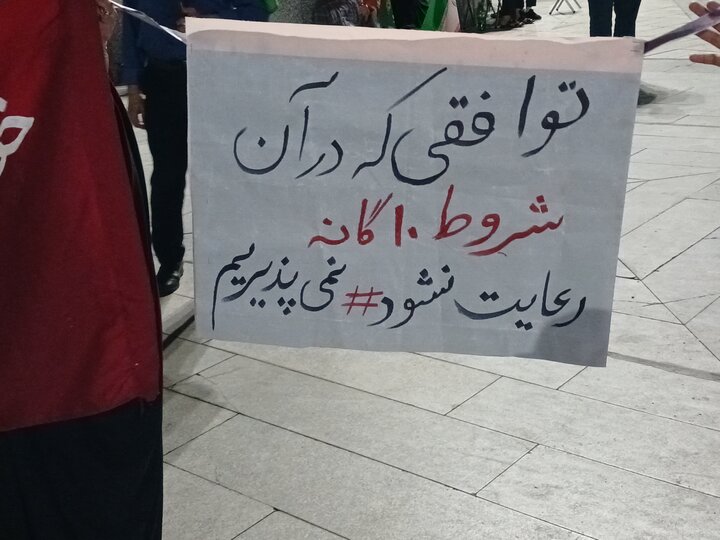 توافقی که در آن
شروط ۱۰ گانه
رعایت نشود #نمی پذیریم